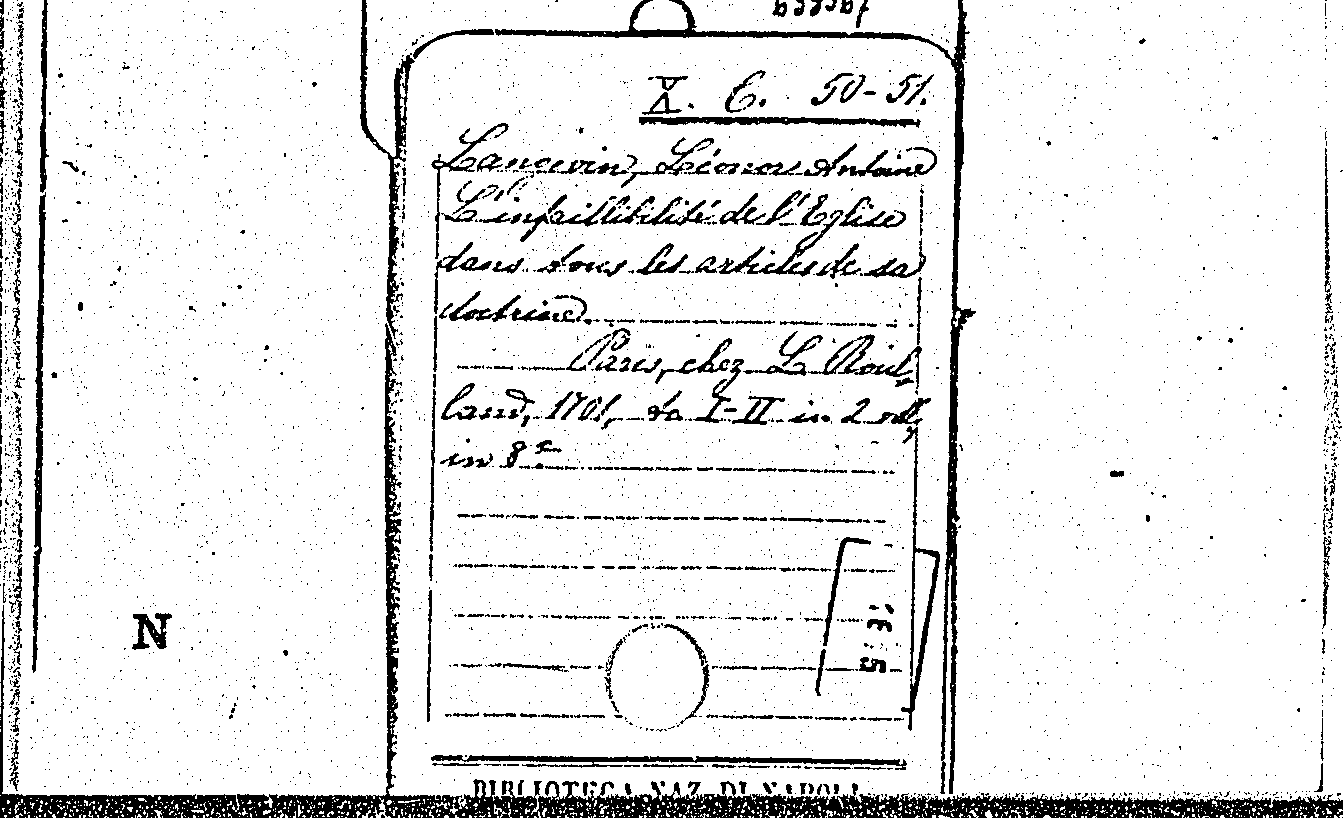 X. E. 50-51.
Langevin, Léonore Antoine
L'infaillibilité de l'Eglise
dans tous les articles de sa
doctrine.
Paris, chez L. Roul-
land, 1701, to I-II in 2 voll,
in 8°
N
BIBLIOTECA NAZ. DI NAPOLI